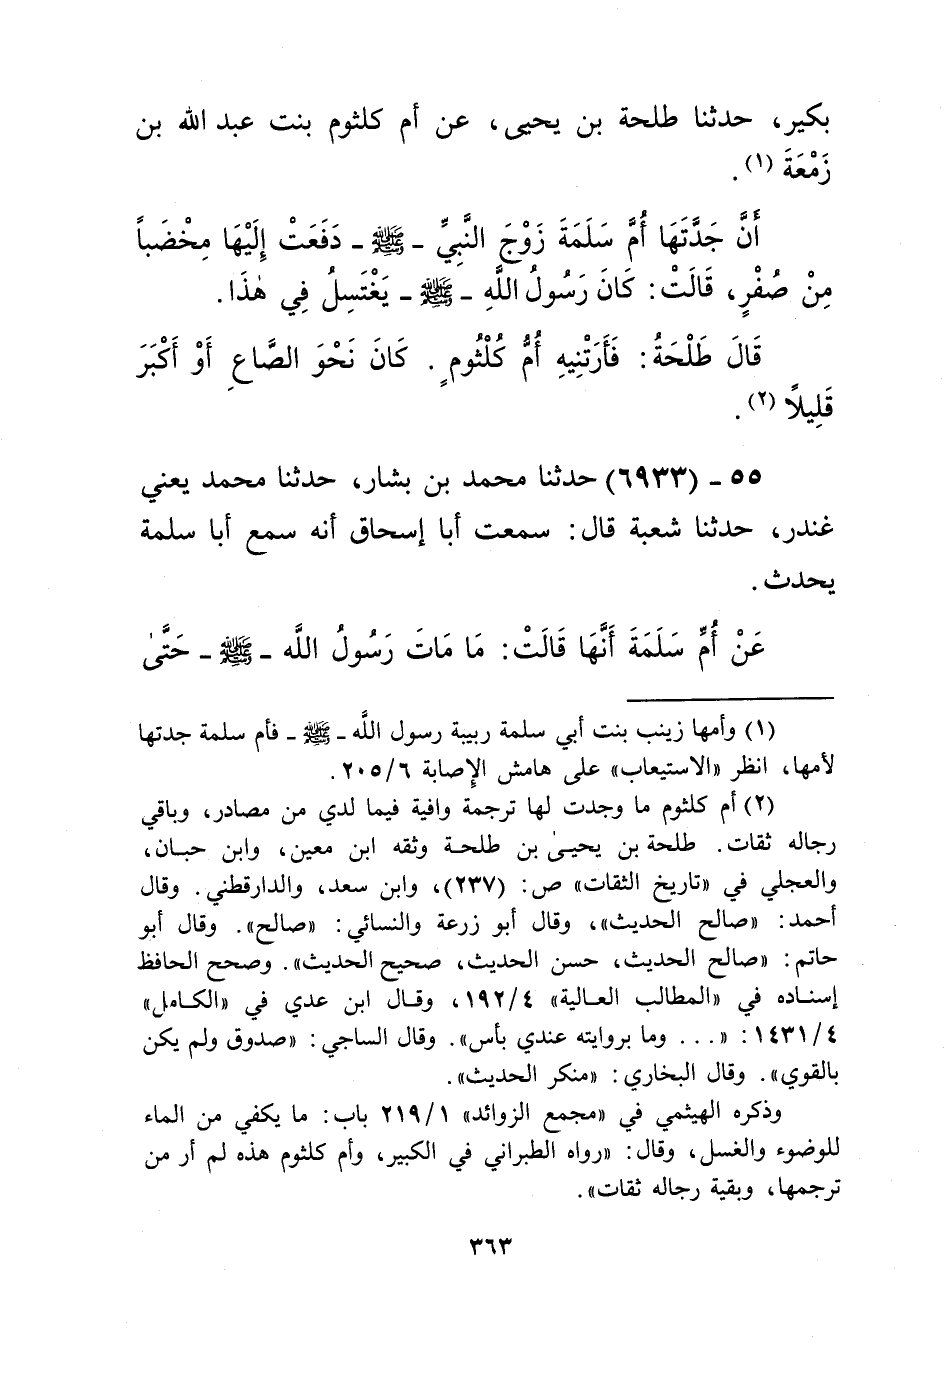 بكير، حدثنا طلحة بن يحيى، عن أم كلثوم بنت عبد الله بن
زَمْعَةَ (١).
أَنَّ جَدَّتَهَا أُمَّ سَلَمَةَ زَوْجَ النَّبِيِّ ـ ﷺ ـ دَفَعَتْ إِلَيْهَا مِخْضَباً
مِنْ صُفْرٍ، قَالَتْ: كَانَ رَسُولُ اللَّهِ ـ ﷺ ـ يَغْتَسِلُ فِي هٰذَا.
قَالَ طَلْحَةُ: فَأَرَتْنِيهِ أُمُّ كُلْثُومٍ. كَانَ نَحْوَ الصَّاعِ أَوْ أَكْبَرَ
قَلِيلاً (٢).
٥٥ ـ (٦٩٣٣) حدثنا محمد بن بشار، حدثنا محمد يعني
غندر، حدثنا شعبة قال: سمعت أبا إسحاق أنه سمع أبا سلمة
يحدث.
عَنْ أُمِّ سَلَمَةَ أَنَّهَا قَالَتْ: مَا مَاتَ رَسُولُ اللَّه ـ ﷺ ـ حَتَّىٰ
(١) وأمها زينب بنت أبي سلمة ربيبة رسول اللَّه ـ ﷺ ـ فأم سلمة جدتها
لأمها، انظر «الاستيعاب» على هامش الإصابة ٢٠٥/٦.
(٢) أم كلثوم ما وجدت لها ترجمة وافية فيما لدي من مصادر، وباقي
رجاله ثقات. طلحة بن يحيىٰ بن طلحة وثقه ابن معين، وابن حبان،
والعجلي في «تاريخ الثقات» ص: (٢٣٧)، وابن سعد، والدارقطني. وقال
أحمد: «صالح الحديث»، وقال أبو زرعة والنسائي: «صالح». وقال أبو
حاتم: «صالح الحديث، حسن الحديث، صحيح الحديث». وصحح الحافظ
إسناده في «المطالب العالية» ١٩٢/٤، وقال ابن عدي في «الكامل»
١٤٣١/٤: «... وما بروايته عندي بأس». وقال الساجي: «صدوق ولم يكن
بالقوي». وقال البخاري: «منكر الحديث».
وذكره الهيثمي في «مجمع الزوائد» ٢١٩/١ باب: ما يكفي من الماء
للوضوء والغسل، وقال: «رواه الطبراني في الكبير، وأم كلثوم هذه لم أر من
ترجمها، وبقية رجاله ثقات».
٣٦٣